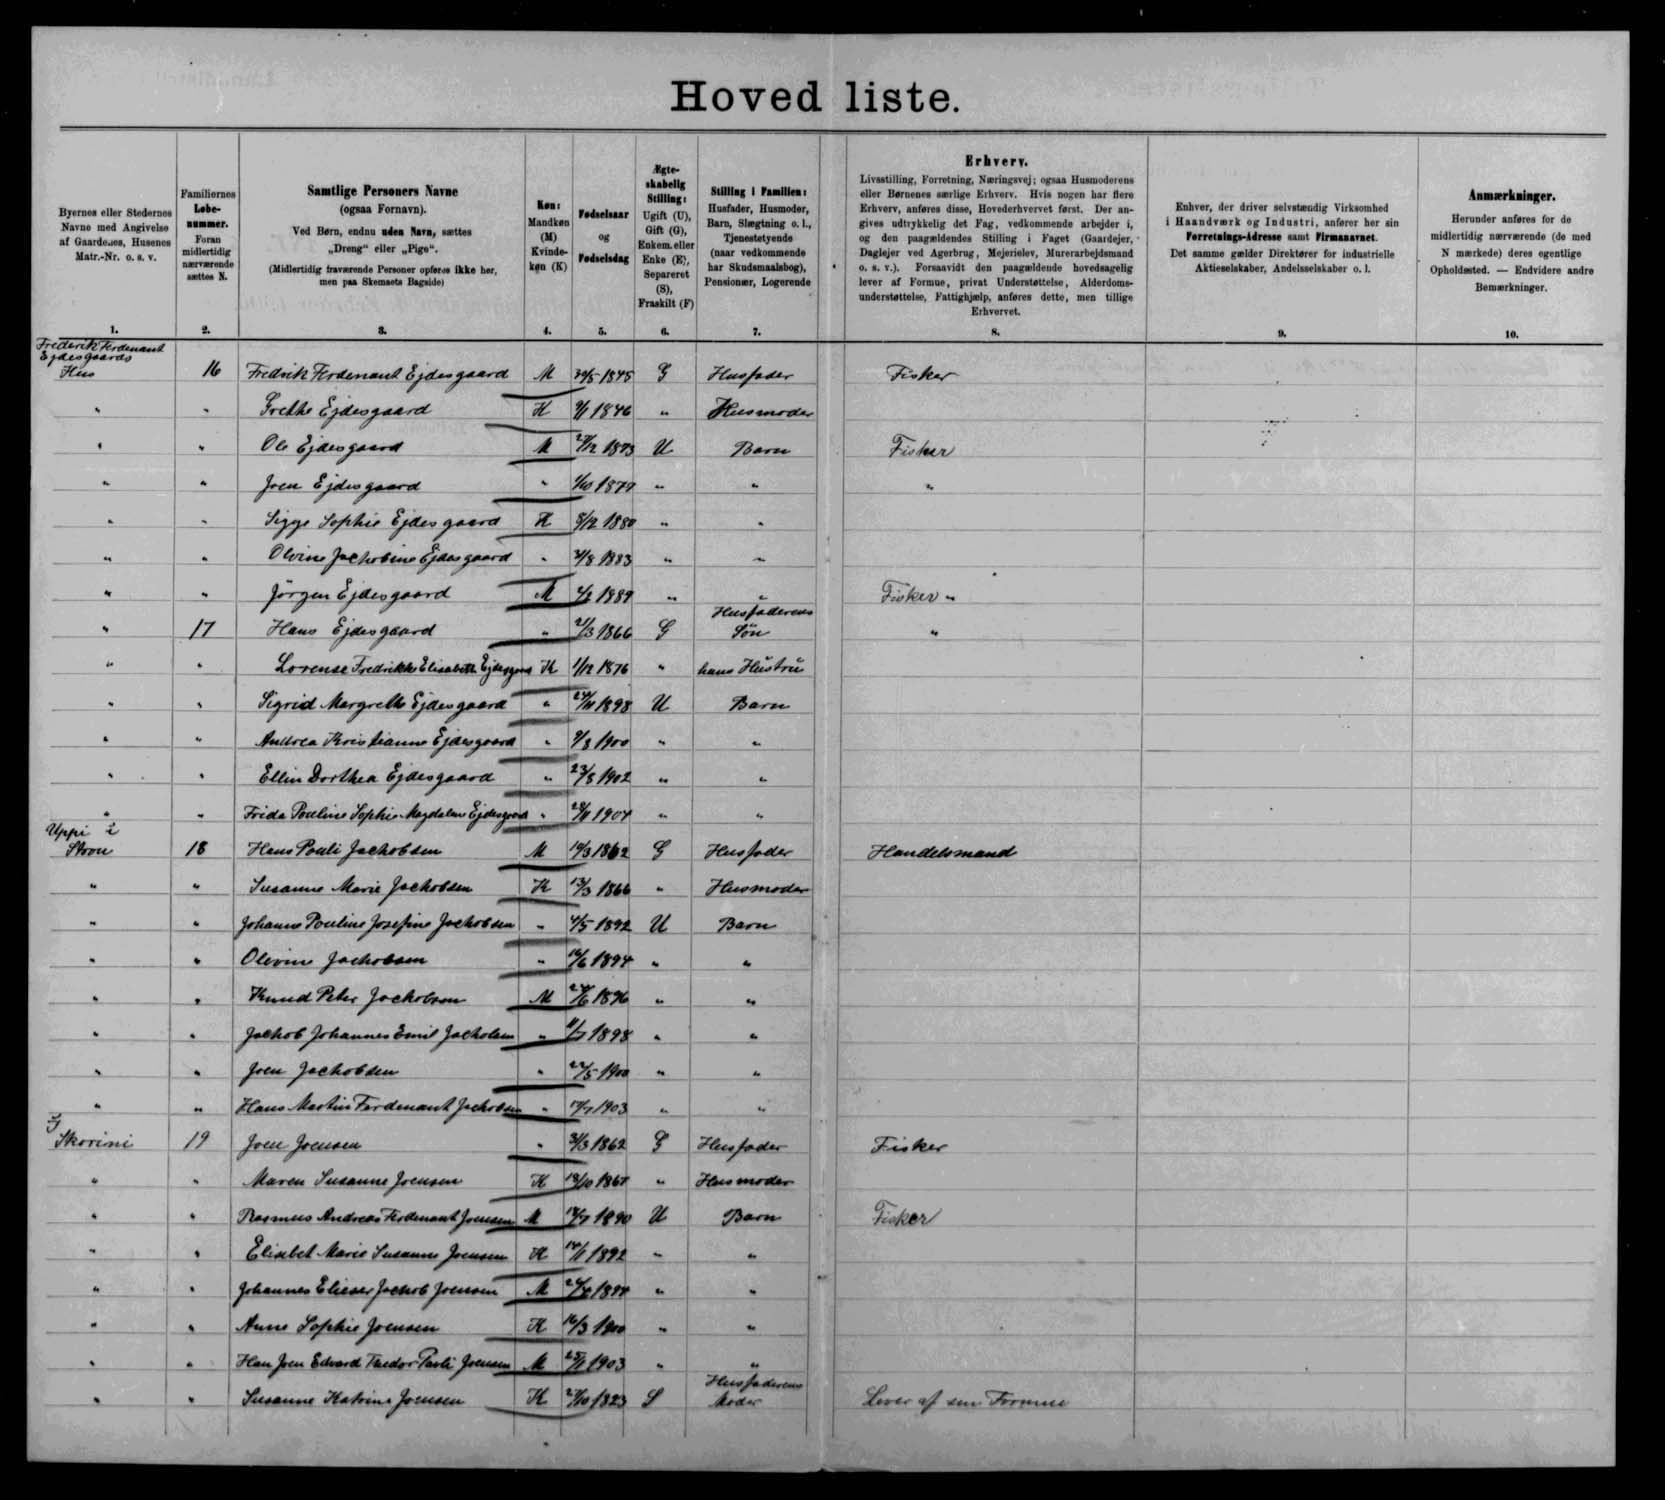 Hoved liste.
Byernes eller Stedernes Navne med Angivelse af Gaardenes, Husenes Matr.-Nr. o. s. v.
Familiernes Løbenummer. Foran midlertidig nærværende sættes N.
Samtlige Personers Navne
(ogsaa Fornavn).
Ved Børn, endnu uden Navn, sættes „Dreng“ eller „Pige“.
(Midlertidig fraværende Personer opføres ikke her, men paa Skemaets Bagside)
Køn: Mandkøn (M) Kvindekøn (K)
Fødselsaar og Fødselsdag
Ægteskabelig Stilling: Ugift (U), Gift (G), Enkem. eller Enke (E), Separeret (S), Fraskilt (F)
Stilling i Familien: Husfader, Husmoder, Barn, Slægtning o. l., Tjenestetyende (naar vedkommende har Skudsmaalsbog), Pensionær, Logerende
Erhverv.
Livsstilling, Forretning, Næringsvej; ogsaa Husmoderens eller Børnenes særlige Erhverv. Hvis nogen har flere Erhverv, anføres disse, Hovederhvervet først. Der angives udtrykkelig det Fag, vedkommende arbejder i, og den paagældendes Stilling i Faget (Gaardejer, Daglejer ved Agerbrug, Mejerielev, Murerarbejdsmand o. s. v.). Forsaavidt den paagældende hovedsagelig lever af Formue, privat Understøttelse, Alderdomsunderstøttelse, Fattighjælp, anføres dette, men tillige Erhvervet.
Enhver, der driver selvstændig Virksomhed i Haandværk og Industri, anfører her sin Forretnings-Adresse samt Firmanavnet.
Det samme gælder Direktører for industrielle Aktieselskaber, Andelsselskaber o. l.
Anmærkninger.
Herunder anføres for de midlertidig nærværende (de med N mærkede) deres egentlige Opholdssted. — Endvidere andre Bemærkninger.
1. 2. 3. 4. 5. 6. 7. 8. 9. 10.
Frederik Ferdenant
Ejdesgaards
Hus 16 Fredrik Ferdenant Ejdesgaard M 1845 G Husfader Fisker
" " Grethe Ejdesgaard K 1846 " Husmoder
" " Ole Ejdesgaard M 1873 U Barn Fisker
" " Joen Ejdesgaard " 1877 " " "
" " Sigge Sophie Ejdesgaard K 8/12 1880 " "
" " Olvine Jachobine Ejdesgaard " 1883 " "
" " Jörgen Ejdesgaard M 1889 " " Fisker "
" 17 Hans Ejdesgaard " 21/3 1866 G Husfaderens Sön "
" " Lorense Fredrikke Elisabeth Ejdesgaard K 1/12 1876 " hans Hustru
" " Sigrid Margrethe Ejdesgaard " 24/11 1898 U Barn
" " Andrea Kristianne Ejdesgaard " 9/3 1900 " "
" " Ellin Dorthea Ejdesgaard " 23/8 1902 " "
" " Frida Pouline Sophie Magdalene Ejdesgaard " 28/11 1904 " "
Uppi i
Stron 18 Hans Pouli Jachobsen M 1862 G Husfader Handelsmand
" " Susanne Marie Jachobsen K 13/3 1866 " Husmoder
" " Johanne Pouline Josefine Jachobsen " 4/5 1892 U Barn
" " Olivine Jachobsen " 16/6 1894 " "
" " Knud Peter Jachobsen M 24/6 1896 " "
" " Jachob Johannes Emil Jachobsen " 11/7 1898 " "
" " Joen Jachobsen " 22/5 1900 " "
" " Hans Martin Ferdenant Jachobsen " 1903 " "
I
Skorini 19 Joen Joensen " 31/3 1862 G Husfader Fisker
" " Maren Susanne Joensen K 1864 " Husmoder
" " Rasmus Andreas Ferdenant Joensen M 1890 U Barn Fisker
" " Elisabet Marie Susanne Joensen K 14/11 1892 " "
" " Johannes Elieser Jachob Joensen M 1894 " "
" " Anne Sophie Joensen K 16/3 1900 " "
" " Han Joen Edvard Thedor Pavli Joensen M 25/11 1903 " "
" " Susanne Katrine Joensen K 1823 S Husfaderens Moder Lever af sin Formue